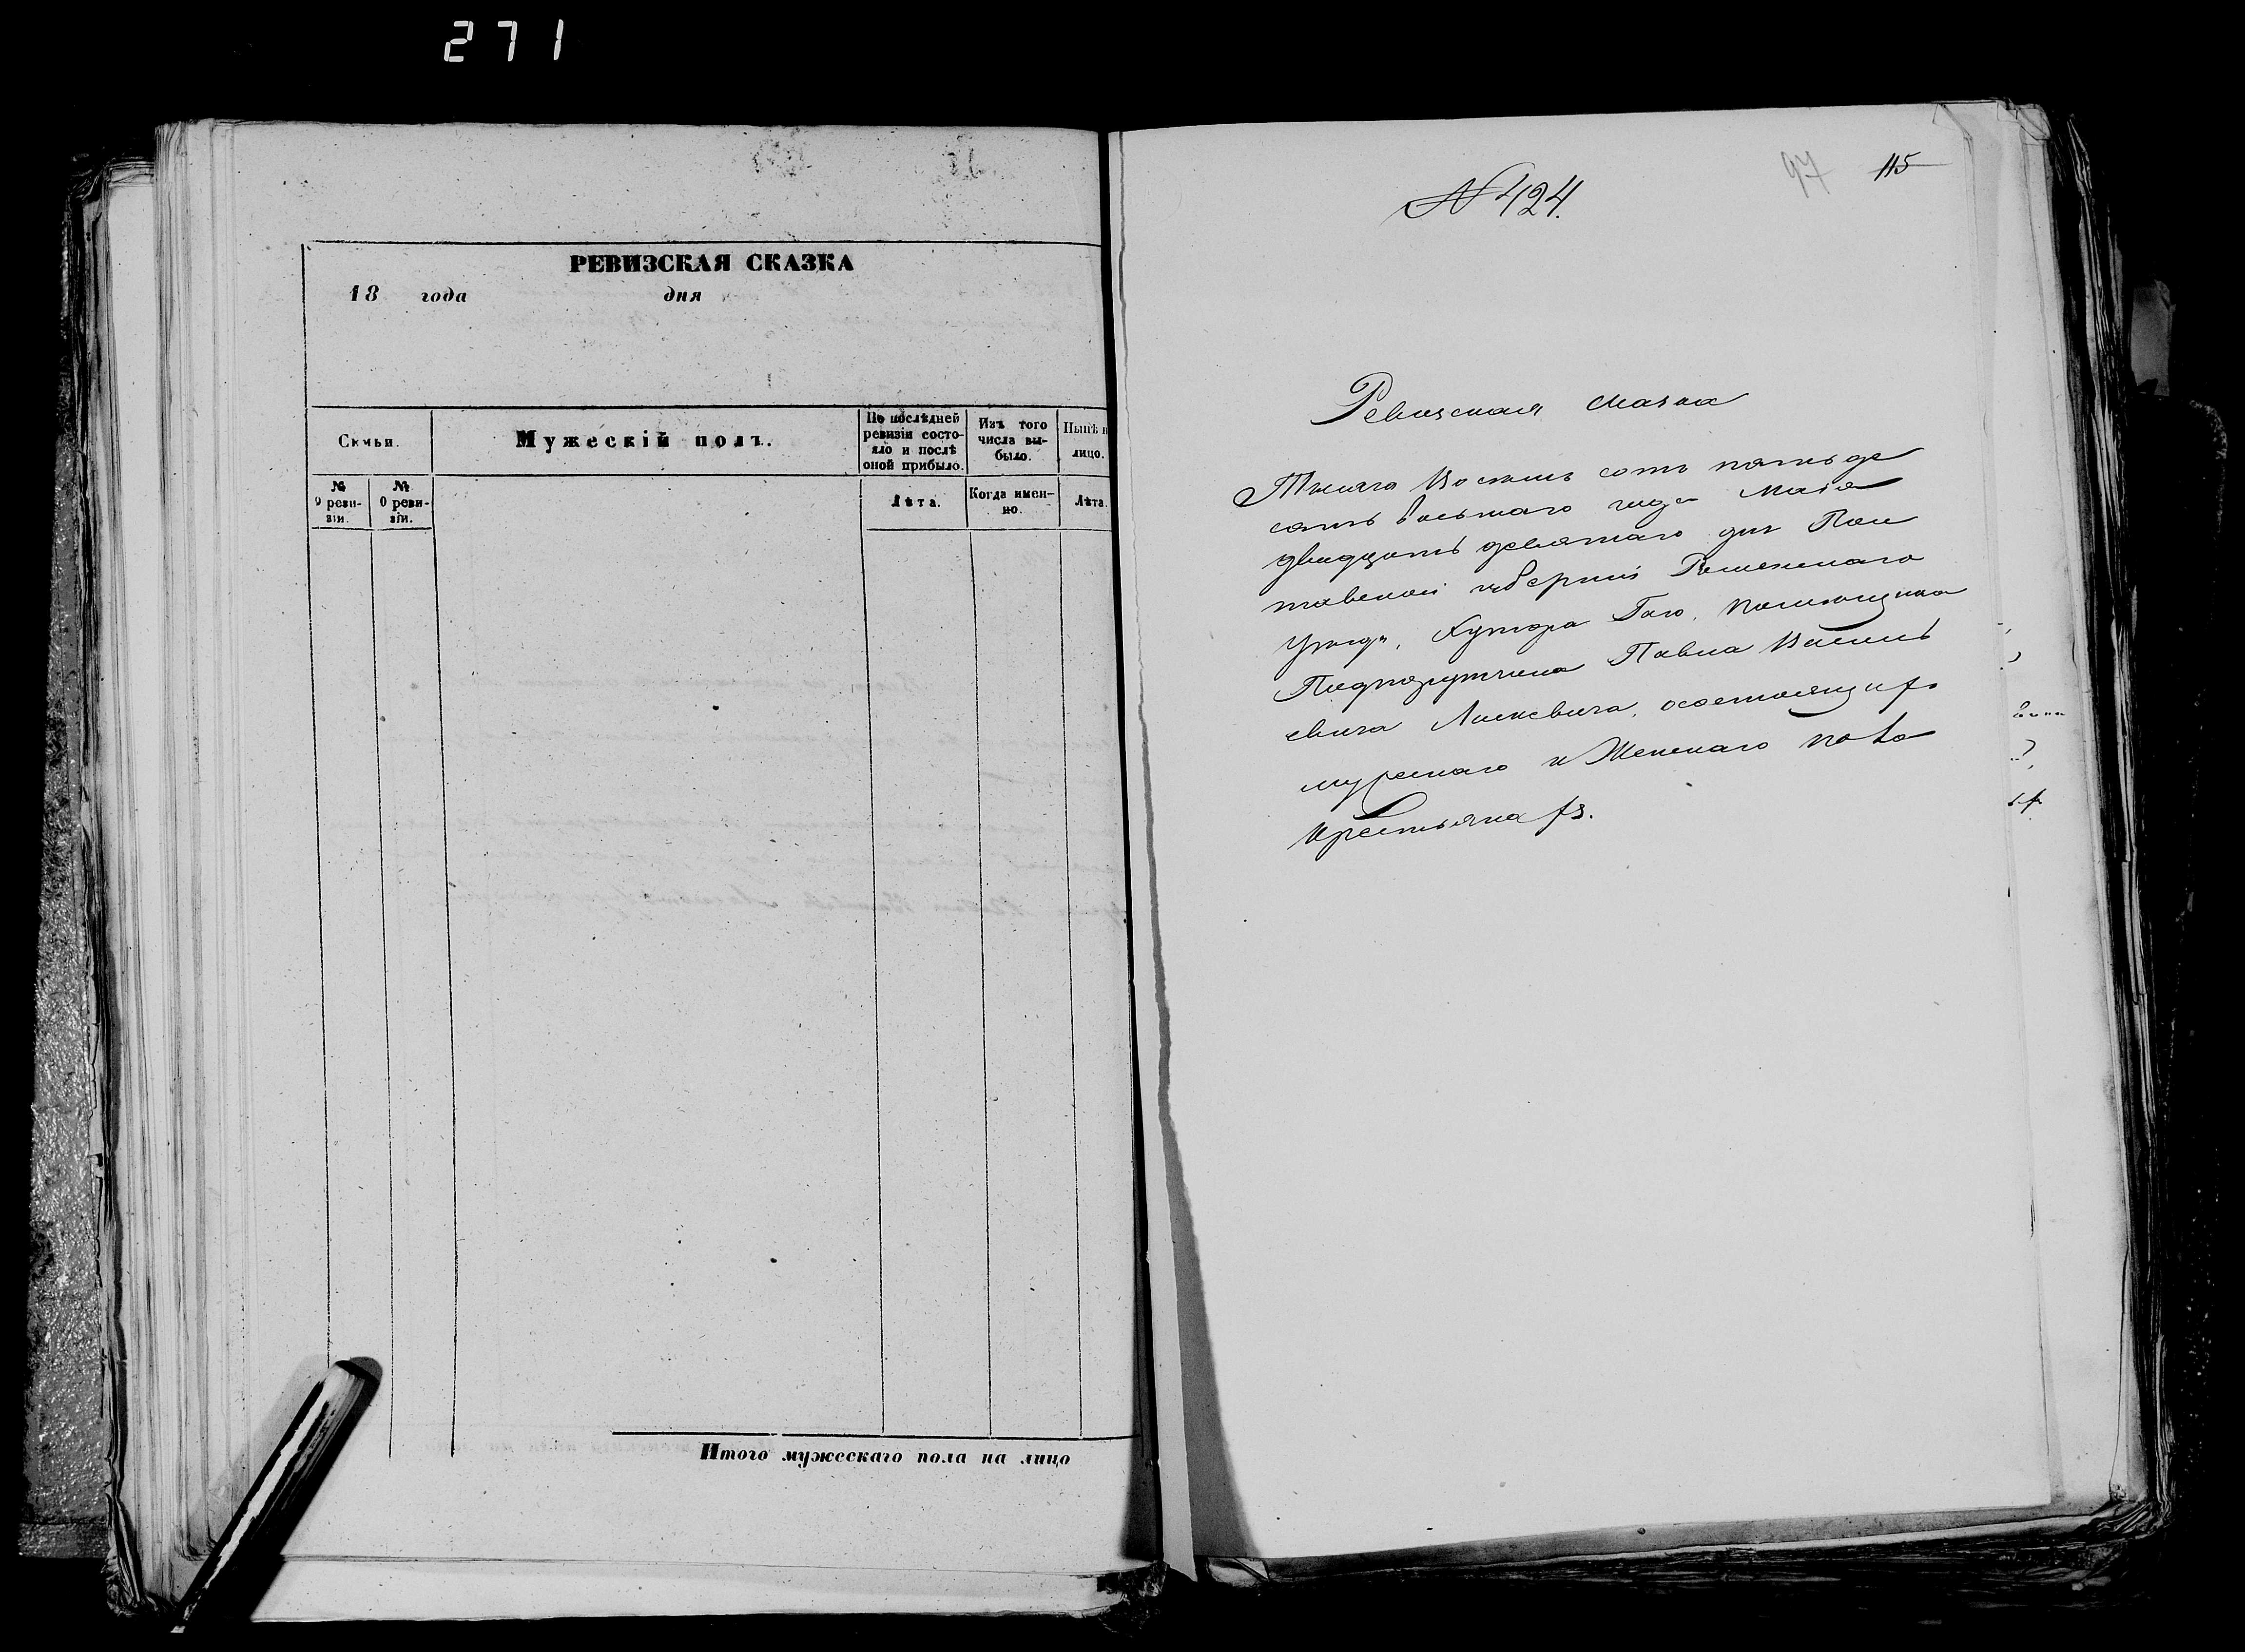 271
РЕВИЗСКАЯ СКАЗКА
18 года дня
Семьи.
Мужескій полъ.
По послѣдней ревизіи состояло и послѣ оной прибыло.
Изъ того числа выбыло.
Нынѣ н
лицо.
№ 9 ревизіи.
№ 0 ревизіи.
Лѣта.
Когда именно.
Лѣта.
Итого мужескаго пола на лицо
97 115
№ 424.
Ревизская сказка
Тысяча Восемь сотъ пятьде
сятъ восьмаго года Маія
двадцать девятаго дня Пол
тавской губерніи Роменскаго
Уезда, Хутора Гаю, помещика
Подпоручика Павла Василь
евича Линевича, о состоящихъ
мужескаго и Женскаго пола
крестьянахъ.